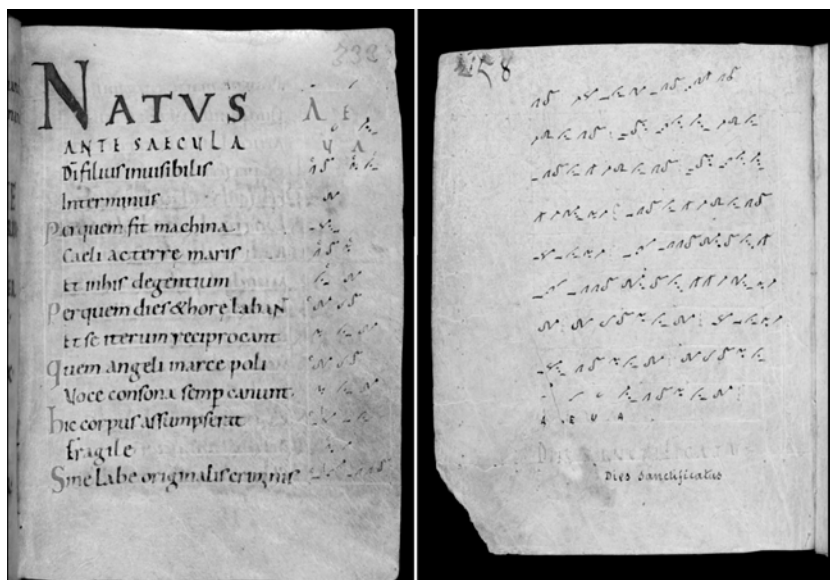 NATVS A E
ANTE SAECULA U A
Dī filius inuisibilis
Interminus
Per quem fit machina
Caeli ac terre maris
Et inhis degentium
Perquem dies & hore labant
Et se iterum reciprocant
Quem angeli inarce poli
Voce consona semp canunt.
hic corpus assumpserat
Fragile
Sine labe originalis criminis
A E U A
Dies sanctificatus